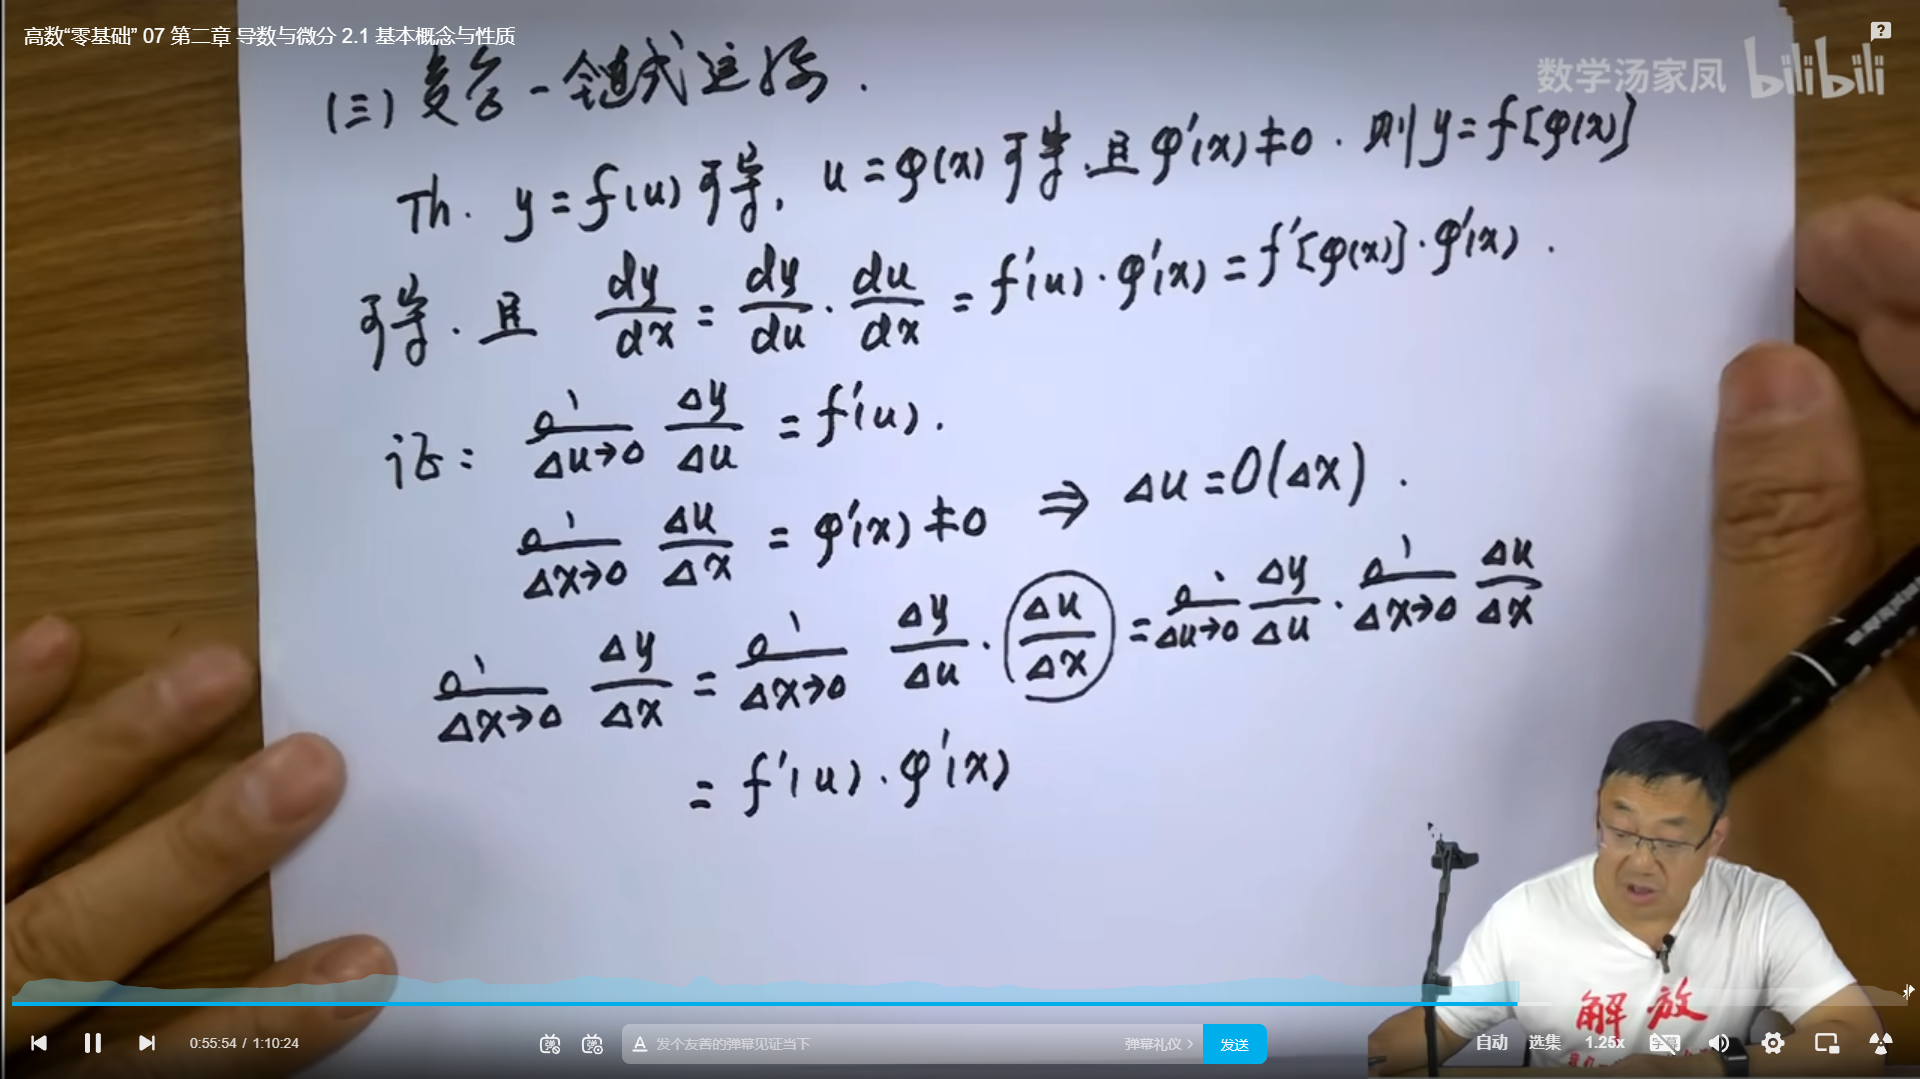 高数“零基础” 07 第二章 导数与微分 2.1 基本概念与性质
数学汤家凤 bilibili
(三) 复合 - 链式运算.
Th. y = f(u) 可导, u = φ(x) 可导.且 φ'(x) ≠ 0. 则 y = f[φ(x)]
可导. 且 dy/dx = dy/du · du/dx = f'(u) · φ'(x) = f'[φ(x)] · φ'(x).
证: lim Δu→0 Δy/Δu = f'(u).
lim Δx→0 Δu/Δx = φ'(x) ≠ 0 ⇒ Δu = O(Δx).
lim Δx→0 Δy/Δx = lim Δx→0 Δy/Δu · Δu/Δx = lim Δu→0 Δy/Δu · lim Δx→0 Δu/Δx
= f'(u) · φ'(x)
解放
0:55:54 / 1:10:24
弹
弹
A 发个友善的弹幕见证当下
弹幕礼仪 >
发送
自动
选集
1.25x
字幕